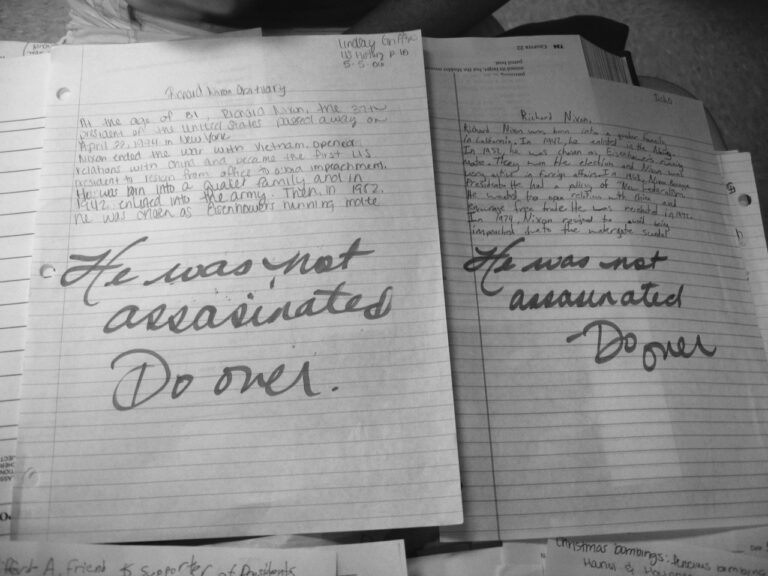 Lindsay
5-5-06
Richard Nixon Obituary
At the age of 81, Richard Nixon, the 37th
president of the United States passed away on
April 22, 1994 in New York.
Nixon ended the war with Vietnam, opened
relations with China and became the first U.S.
president to resign from office to avoid impeachment.
He was born into a Quaker family and in
1942, enlisted into the army. Then, in 1952,
he was chosen as Eisenhower's running mate
He was not
assasinated
Do over.
CHAPTER 22
Richard Nixon.
Richard Nixon was born into a quaker family
in California. In 1942, he enlisted in the
In 1952, he was chosen as Eisenhower's running
mate. They won the election and Nixon was
very active in foreign affairs. In 1968, Nixon became
President. He had a policy of "New Federalism".
He wanted to open relation with China and
free trade. He was reelected in 1972.
In 1974, Nixon resigned to avoid being
impeached due to the watergate scandal
He was not
assasinated
-Do over
A. Friend & Supporter of Presidents
Christmas bombings:
Hanoi &